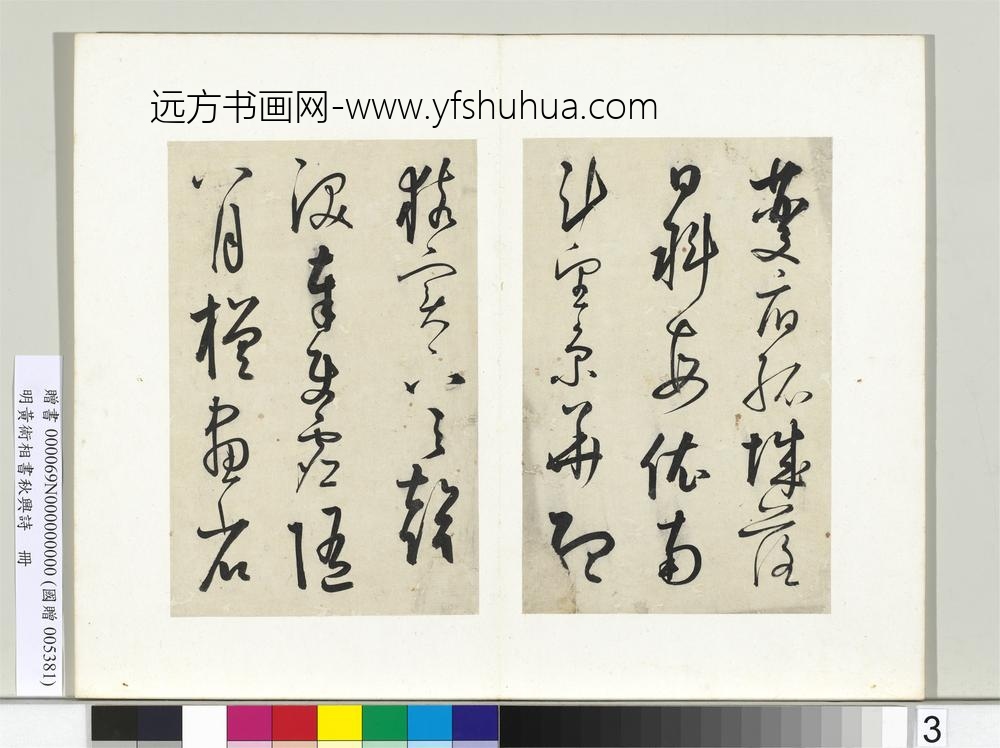 远方书画网-www.yfshuhua.com
夔府孤城落
日斜每依南
斗望京華聽
猿實下三聲
淚奉使虛隨
八月槎畫省
贈書 000069N000000000 (國贈 005381)
明黃術相書秋興詩 冊
3